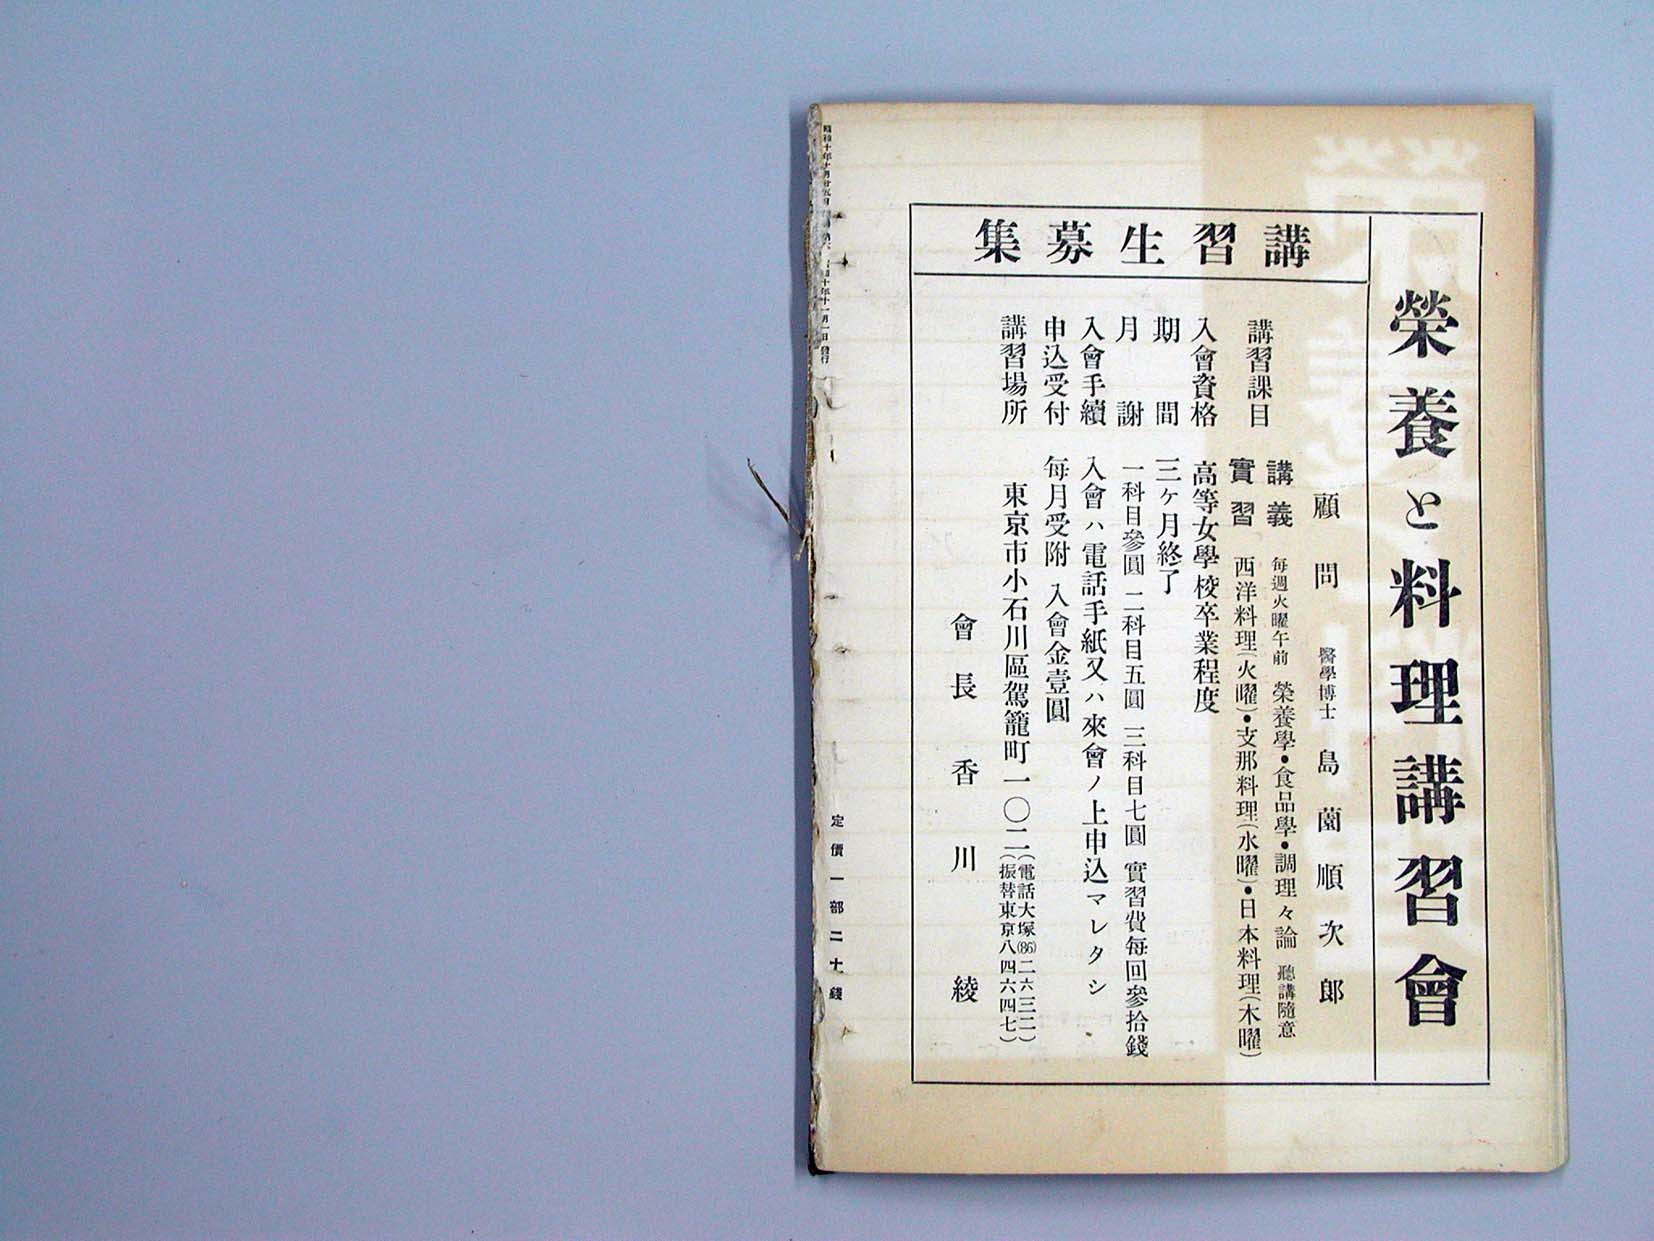 榮養と料理講習會
講習生募集
顧問 醫學博士 島薗順次郎
講習課目
講義 每週火曜午前 榮養學・食品學・調理々論 聽講隨意
實習 西洋料理(火曜)・支那料理(水曜)・日本料理(木曜)
入會資格 高等女學校卒業程度
期間 三ヶ月終了
月謝 一科目參圓 二科目五圓 三科目七圓 實習費每回參拾錢
入會手續 入會ハ電話手紙又ハ來會ノ上申込マレタシ
申込受付 每月受附 入會金壹圓
講習場所 東京市小石川區駕籠町一〇二
(電話大塚(86)二六三二)
(振替東京八四六四七)
會長 香川綾
定價一部二十錢